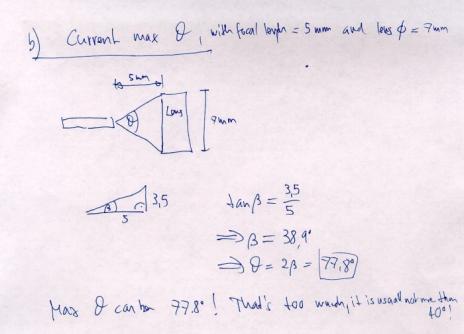 b) Current max θ, with focal length = 5 mm and lens ϕ = 7mm
5 mm
θ
Lens
7mm
β
3,5
5
tan β = 3,5/5
⇒ β = 38,9°
⇒ θ = 2β = 77,8°
Max θ can be 77.8°! That's too much, it is usually not more than
40°!